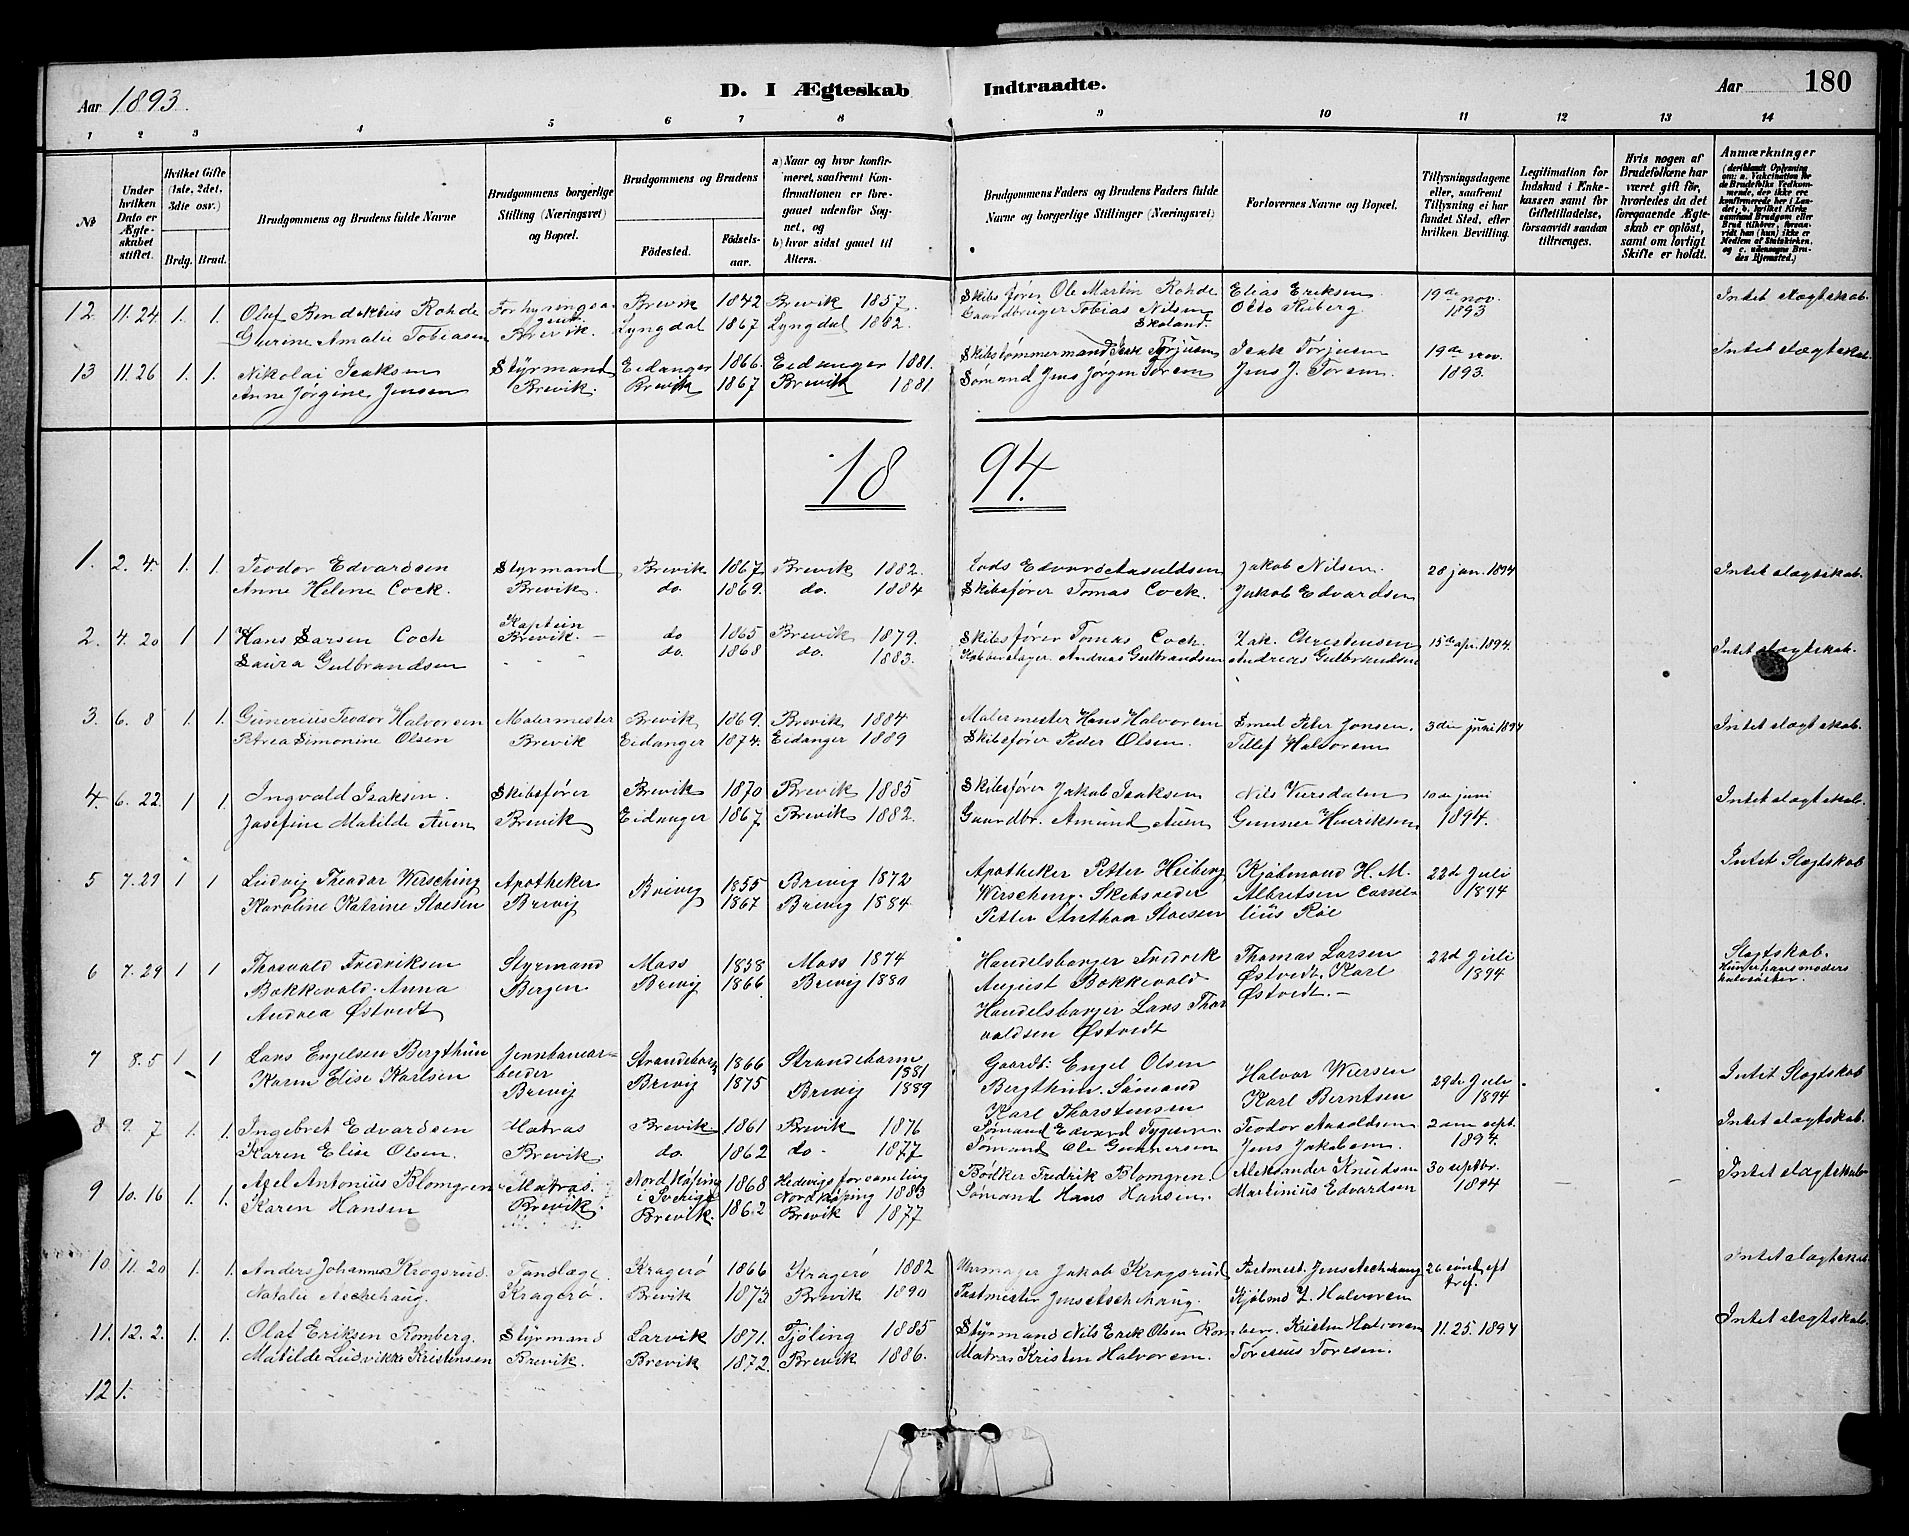 Aar 1893. D. I Ægteskab Indtraadte. Aar 180
1 2 3 4 5 6 7 8 9 10 11 12 13 14
№
Under hvilken Dato er Ægteskabet stiftet.
Hvilket Gifte (1ste, 2det, 3dte osv.)
Brdg. Brud.
Brudgommens og Brudens fulde Navne
Brudgommens borgerlige Stilling (Næringsvei) og Bopæl.
Brudgommens og Brudens
Födested. Födselsaar.
a) Naar og hvor konfirmeret, saafremt Konfirmationen er foregaaet udenfor Sognet, og
b) hvor sidst gaaet til Alters.
Brudgommens Faders og Brudens Faders fulde Navne og borgerlige Stillinger (Næringsvei)
Forlovernes Navne og Bopæl.
Tillysningsdagene eller, saafremt Tillysning ei har fundet Sted, efter hvilken Bevilling.
Legitimation for Indskud i Enkekassen samt for Giftetilladelse, forsaavidt saadan tiltrænges.
Hvis nogen af Brudefolkene har været gift för, hvorledes da det foregaaende Ægteskab er oplöst, samt om lovligt Skifte er holdt.
Anmærkninger
12. 11.24. 1. 1. Oluf Bendiktus Rohde Brevik 1842 Brevik 1857. Skibsfører Ole Martin Rohde Elias Eriksen. 19de nov. Intet slegtskab.
Gurine Amalie Tobiasen Brevik. Lyngdal 1867 Lyngdal 1882. Gaardbruger Tobias Nilsen Otto Ruberg. 1893
Skoland.
13 11.26 1. 1. Nikolai Isaksen Styrmand Eidanger 1866. Eidanger 1881. Skibstømmermand Isak Torjusen Isak Torjusen 19de nov. Intet slegtskab.
Anne Jørgine Jensen Brevik. Brevik 1867 Brevik 1881 Sømand Jens Jørgen Toresen Jens J. Toresen. 1893.
18 94.
1. 2. 4. 1. 1. Teodor Edvardsen Styrmand Brevik 1867 Brevik 1882. Lods Edvard Aasuldsen Jakob Nilsen. 28 jan. 1894 Intet slegtskab.
Anne Helene Cock. Brevik. do. 1869. do. 1884 Skibsfører Tomas Cock. Jakob Edvardsen
2. 4. 20 1 1 Hans Larsen Coch Kaptein Brevik. do 1865 Brevik 1879. Skibsfører Tomas Coch Zak. Christensen 15de apr. 1894. Intet slegtskab.
Laura Gulbrandsen do. 1868 do. 1883. Andreas Gulbrandsen Andreas Gulbrandsen
3. 6. 8 1. 1. Gunerius Teodor Halvorsen Malermester Brevik 1869. Brevik 1884 Malermester Hans Halvorsen Smed Peter Jonsen. 3die juni 1894 Intet slegtskab.
Petrea Simonine Olsen Brevik Eidanger 1874. Eidanger 1889 Skibsfører Peder Olsen. Tellef Halvorsen
4. 6. 22. 1 1. Ingvald Isaksen. Skibsfører Brevik 1870 Brevik 1885 Skibsfører Jakob Isaksen Nils Versdalen 10de juni Intet slegtskab.
Josefine Matilde Auen Brevik Eidanger 1867 Brevik 1882. Gaardbr. Amund Auen Gunner Henriksen 1894.
5 7. 29 1 1 Ludvig Theodor Wersching Apotheker Brevig 1855 Brevig 1872 Apotheker Petter Heiberg Kjøbmand H. M. 22d Juli Intet Slegtskab
Karoline Katrine Stoesen Brevig 1867 Brevig 1884 Wersching. Skibsreder Albretsen Corne- 1894
Petter Anthon Stoesen lius Röe
6 7. 29 1 1 Thorvald Fredriksen Styrmand Moss 1858 Moss 1874 Handelsborger Fredrik Thomas Larsen 22d Juli Slegtskab.
Bokkevold. Anna Bergen Brevig 1866 Brevig 1880 August Bokkevold Østvedt. Karl 1894 Hun er hans moders
Andrea Østvedt Handelsborger Lars Thor Østvedt.
valdsen Østvedt
7 8. 5 1 1 Lars Engelsen Bergthun Jernbanear- Strandebarm 1866 Strandebarm Gaardb. Engel Olsen Halvor Wersen 29de Juli Intet Slegtskab
Karen Elise Karlsen beider 1881 Bergthun. Sømand Karl Berntsen 1894
Brevig Brevig 1875 Brevig 1889 Karl Thorstensen
8 9. 7 1. 1. Ingebret Edvardsen Matros Brevik 1861 Brevik 1876 Sømand Edvard Teodor Aasoldsen 2den sept. Intet slegtskab.
Karen Elise Olsen. Brevik. do. 1862 do. 1877 Sømand Ole Gunnersen Jens Jakobsen. 1894.
9 10. 16 1. 1. Axel Antonius Blomgren Matros. Nordköping i Sverige 1868 Hedvigs forsamling Nordköping 1883 Bødker Fredrik Blomgren. Aleksander Knudsen 30 septbr. Intet slegtskab
Karen Hansen Brevik. Brevik. 1862 Brevik 1877 Sømand Hans Hansen. Martinius Edvardsen 1894
10. 11. 20 1. 1. Anders Johannes Krogsrud. Tandlæge. Kragerø 1866 Kragerø 1882 Urmager Jakob Krogsrud Postmest. Jens Aschehoug Intet slegtskab.
Natalie Aschehoug. Kragerø. Brevik 1873 Brevik 1890 Postmester Jens Aschehoug. Kjøbmd Z. Halvorsen
11. 12. 2. 1. 1. Olaf Eriksen Romberg. Styrmand Larvik 1871. Tjøling 1885 Styrmand Nils Erik Olsen Romberg. Kristen Halvorsen 11. 25. 1894 Intet slegtskab.
Matilde Ludvikke Kristensen Brevik. Brevik 1872. Brevik 1886. Matros Kristen Halvorsen. Toresius Toresen.
12 1.